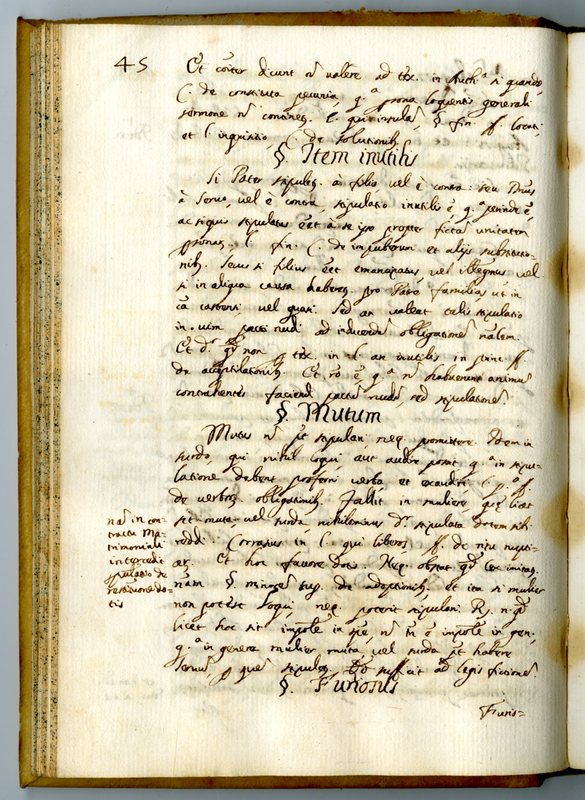 45
Et coiter dicunt nt valere ad tex. in Auth.a si quando
C. de constituta pecunia, q.a prona loquentis generali
sermone nt continet. l. qui insulas, § fin. ff. locati
et l. inquisitio, C. de solutionib.
§. Item inutilis
Si Pater stipulet. à filio vel è contra: seu Dnus
à servo, vel è contra stipulatio inutilis ē, q.a perinde ē,
ac siquis stipulatus eēt à se ipso propter fictā unitatem
psonar. l. fin. C. de impuberum et alijs substitutio=
nib. Secus si filius eēt emancipatus vel illegitimus vel
si in aliqua causa haberet. pro Patre familias ut in
cā castrensi vel quasi. Sed an valeat talis stipulatio
in vim pacti nudi ad inducendā obligationē nalem.
Et dr. qd non p tex. in l. an inutilis in princ. ff.
de acceptilationib. Et rō ē, q.a nt habuerunt animū
contrahentes faciend pactū nudū, sed stipulationē
§. Mutum
Mutus nt pt stipulari, neq. promittere. Idem in
surdo, qui nihil loqui aut audire possit, q.a in stipu=
latione debent proferri verba et exaudiri l. p.a ff.
de verbor. obligationib. Fallit in muliere, que licet
sit muta vel surda nihilominus dr. stipulata dotem sibi
reddi. Corrasius in l. qui liberos ff. de ritu nupti=
ar. Et hoc favore dotis. Neq. obstat qd lex imitat.
nām § minorē sup. de adoptionib, et ita si mulier
non potest loqui neq. poterit stipulari. R. n. qd
licet hoc sit impōle in spē, nt tn ē impōle in gen.
q.a in genere mulier muta, vel surda pt habere
servū, p quē stipulet. Et suff.cit ad legis fictionē.
§. Furiosus
Furio=
nā in con=
tractu Ma=
trimoniali
intercedit
stipulatio de
restitutione do=
tis